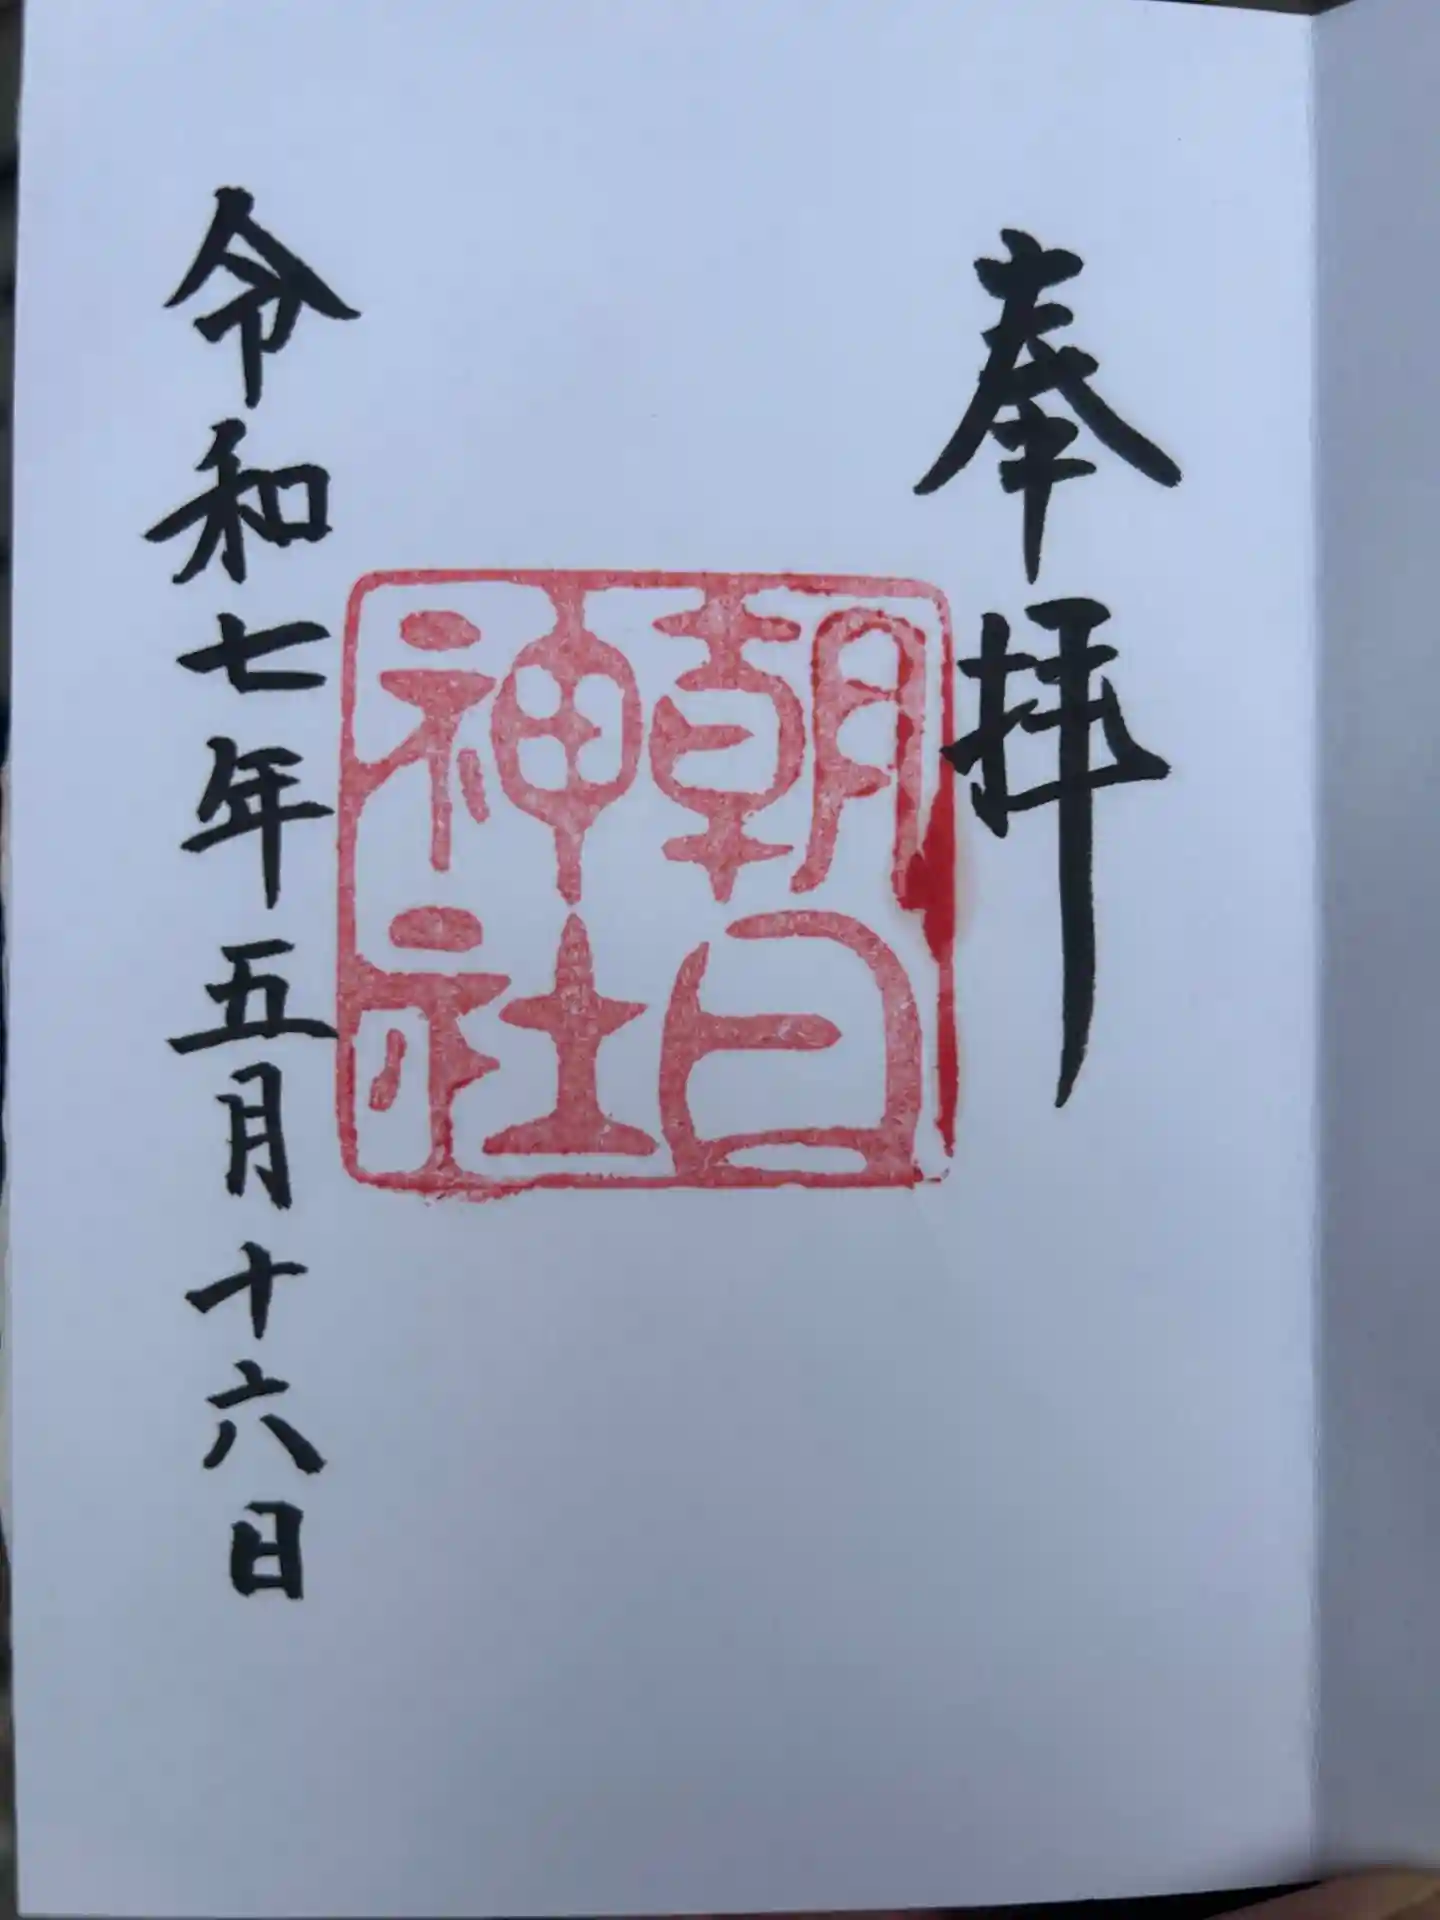 奉拝
朝日
神社
令和七年五月十六日